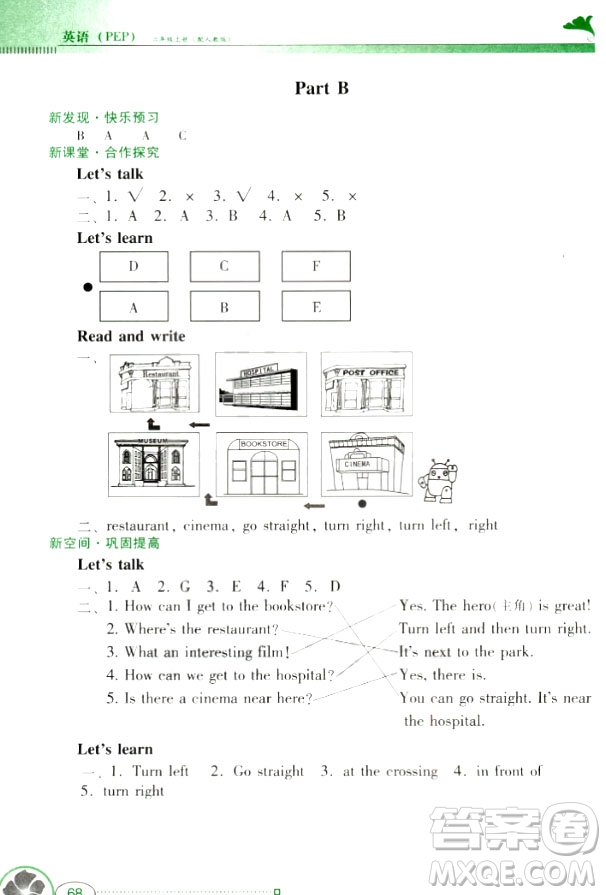 英语（PEP） 三年级上册（配人教版）
Part B
新发现·快乐预习
B A A C
新课堂·合作探究
Let's talk
一、1. √ 2. × 3. √ 4. × 5. ×
二、1. A 2. A 3. B 4. A 5. B
Let's learn
D C F
A B E
Read and write
一、
Restaurant HOSPITAL POST OFFICE
MUSEUM BOOKSTORE CINEMA
二、restaurant, cinema, go straight, turn right, turn left, right
新空间·巩固提高
Let's talk
一、1. A 2. G 3. E 4. F 5. D
二、1. How can I get to the bookstore? Yes. The hero(主角)is great!
2. Where's the restaurant? Turn left and then turn right.
3. What an interesting film! It's next to the park.
4. How can we get to the hospital? Yes, there is.
5. Is there a cinema near here? You can go straight. It's near
the hospital.
Let's learn
一、1. Turn left 2. Go straight 3. at the crossing 4. in front of
5. turn right
68
答案圈
MXQE.COM